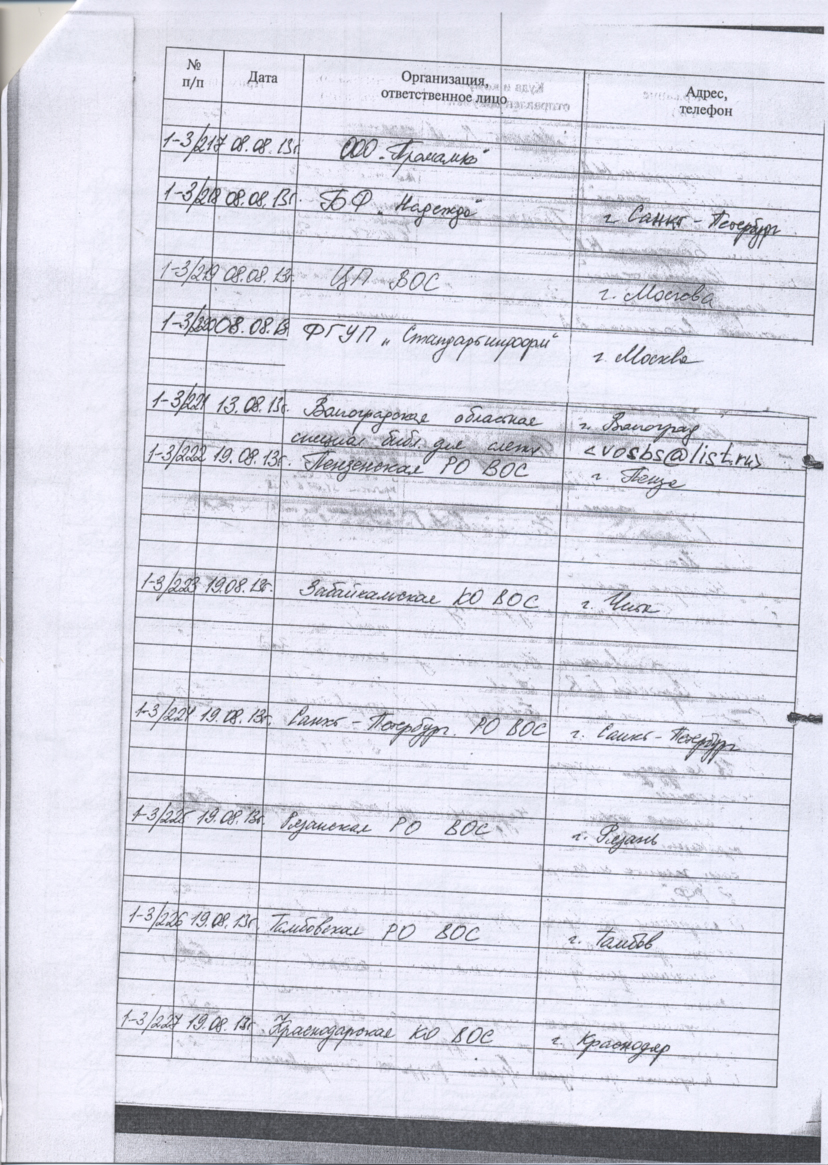 № п/п Дата Организация, ответственное лицо Адрес, телефон
1-3/217 08.08.13г. ООО „Промамко"
1-3/218 08.08.13г. БФ „Надежда" г. Санкт-Петербург
1-3/219 08.08.13г. ЦП ВОС г. Москва
1-3/220 08.08.13 ФГУП „Стандартинформ" г. Москва
1-3/221 13.08.13г. Волгоградская областная г. Волгоград
специал. библ. для слепых <vosbs@list.ru>
1-3/222 19.08.13г. Пензенская РО ВОС г. Пенза
1-3/223 19.08.13г. Забайкальская КО ВОС г. Чита
1-3/224 19.08.13г. Санкт-Петербург. РО ВОС г. Санкт-Петербург
1-3/225 19.08.13г. Рязанская РО ВОС г. Рязань
1-3/226 19.08.13г. Тамбовская РО ВОС г. Тамбов
1-3/227 19.08.13г. Краснодарская КО ВОС г. Краснодар